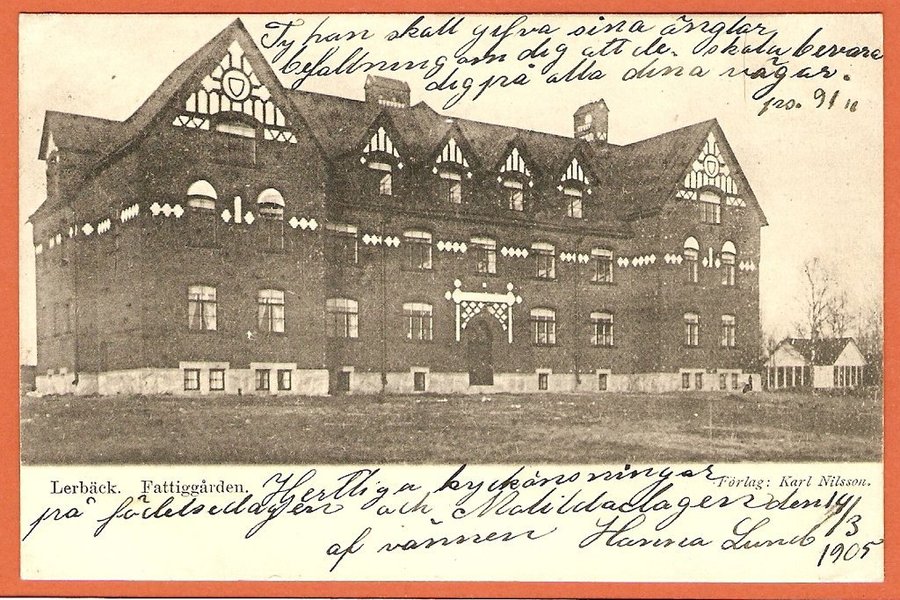 Ty han skall gifva sina änglar
befallning om dig att de skola bevara
dig på alla dina vägar.
ps. 91 11
Lerbäck. Fattiggården.
Förlag: Karl Nilsson.
Hjertliga lyckönskningar
på födelsedagen och Matildadagen den 14/3
af vännen Hanna Lund 1905